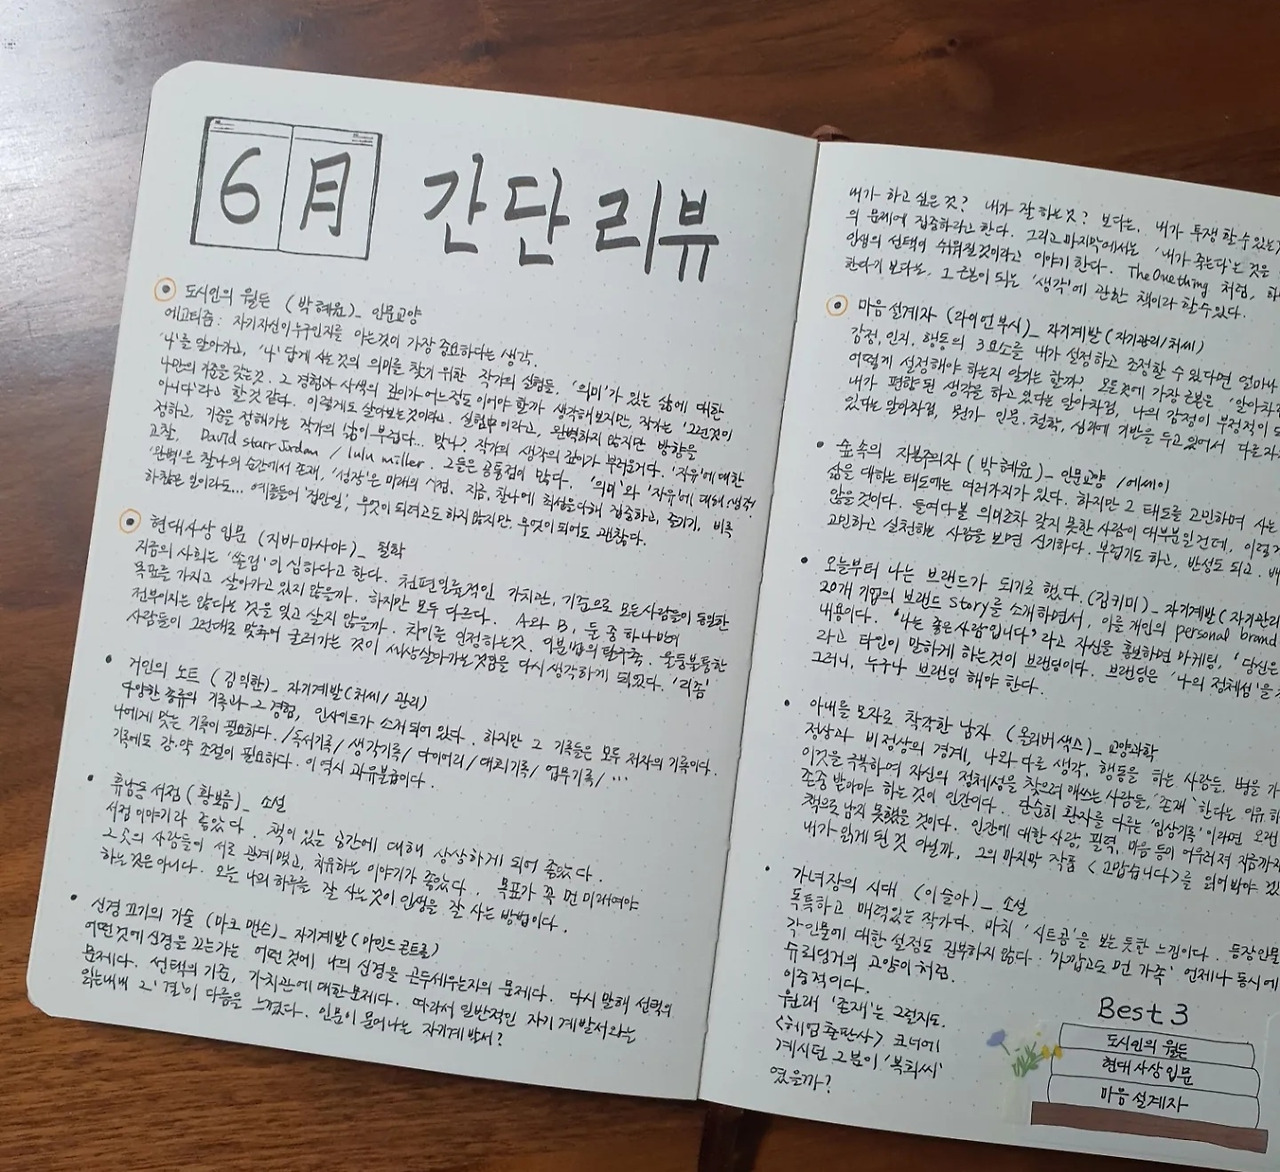 6 月 간단리뷰
도시인의 월든 (박혜윤)_ 인문교양
에고티즘: 자기자신이 누구인지를 아는것이 가장 중요하다는 생각.
'나'를 알아가고, '나'답게 사는 것의 의미를 찾기 위한 작가의 실험들. '의미'가 있는 삶에 대한
나만의 기준을 갖는것. 그 경험과 사색의 깊이가 어느정도 이어야 할까 생각해보지만, 작가는 '그런것이
아니다'라고 할 것 같다. 이렇게도 살아보는것이라고. 실험中이라고, 완벽하지 않지만 방향을
정하고, 기준을 정해가는 작가의 삶이 부럽다... 맞나? 작가의 생각의 깊이가 부러운거다. '자유'에 대한
고찰, David starr Jordan / lulu miller. 그들은 공통점이 많다. '의미'와 '자유'에 대해 생각.
'완벽'은 찰나의 순간에서 존재, '성장'은 미래의 시점. 지금, 찰나에 최선을 다해 집중하고, 즐기기, 비록
하찮은 일이라도... 예를들어 '집안일', 무엇이 되려고도 하지 않지만, 무엇이 되어도 괜찮다.
현대사상 입문 (지바 마사야)_ 철학
지금의 사회는 '쏠림'이 심하다고 한다. 천편일률적인 가치관, 기준으로 모든사람들이 동일한
목표를 가지고 살아가고 있지 않을까. 하지만 모두 다르다. A와 B, 둘 중 하나만이
전부이지는 않다는 것을 잊고 살지 않을까. 차이를 인정하는것, 이분법의 탈구축. 울퉁불퉁한
사람들이 그런대로 맞추어 굴러가는 것이 세상살아가는 것임을 다시 생각하게 되었다. '리듬'
거인의 노트 (김익한)_ 자기계발(처세/관리)
다양한 종류의 기록과 그 경험, 인사이트가 소개 되어 있다. 하지만 그 기록들은 모두 저자의 기록이다.
나에게 맞는 기록이 필요하다. /독서기록/ 생각기록/ 다이어리/ 대화기록/ 업무기록/ ...
기록에도 강·약 조절이 필요하다. 이 역시 과유불급이다.
휴남동 서점 (황보름)_ 소설
서점 이야기라 좋았다. 책이 있는 공간에 대해 상상하게 되어 좋았다.
그 곳의 사람들이 서로 관계 맺고, 치유하는 이야기가 좋았다. 목표가 꼭 먼 미래여야
하는 것은 아니다. 오늘 나의 하루를 잘 사는 것이 인생을 잘 사는 방법이다.
신경 끄기의 기술 (마크 맨슨)_ 자기계발 (마인드콘트롤)
어떤 것에 신경을 끄는가는 어떤 것에 나의 신경을 곤두세우는지의 문제다. 다시 말해 선택의
문제다. 선택의 기준, 가치관에 대한 문제다. 따라서 일반적인 자기계발서와는
읽는내내 그 '결'이 다름을 느꼈다. 인문이 묻어나는 자기계발서?
내가 하고 싶은 것? 내가 잘 하는 것? 보다는, 내가 투쟁 할 수 있는
의 문제에 집중하라고 한다. 그리고 마지막에서는 '내가 죽는다'는 것을
인생의 선택이 쉬워질것이라고 이야기 한다. The One thing 처럼,
한다기 보다는, 그 근본이 되는 '생각'에 관한 책이라 할 수 있다.
마음 설계자 (라이언 부시)_ 자기계발(자기관리/처세)
감정, 인지, 행동의 3요소를 내가 설정하고 조정할 수 있다면 얼마나
어떻게 설정해야 하는지 알기는 할까? 모든것에 가장 근본은 '알아차림
내가 편향된 생각을 하고 있다는 알아차림, 나의 감정이 부정적이
있다는 알아차림, 뭔가 인문, 철학, 심리에 기반을 두고 있어서 다른 자
숲 속의 자본주의자 (박혜윤)_ 인문교양 /에세이
삶을 대하는 태도에는 여러가지가 있다. 하지만 그 태도를 고민하며 사는
않을 것이다. 들여다볼 의미조차 갖지 못한 사람이 대부분일건데, 이렇게
고민하고 실천하는 사람을 보면 신기하다. 부럽기도 하고, 반성도 되고.
오늘부터 나는 브랜드가 되기로 했다. (김키미)_ 자기계발 (자기관리
20개 기업의 브랜드 story를 소개하면서, 이를 개인의 personal brand
내용이다. "나는 좋은 사람입니다"라고 자신을 홍보하면 마케팅, '당신은
라고 타인이 말하게 하는것이 브랜딩이다. 브랜딩은 '나의 정체성'을
그러니, 누구나 브랜딩 해야 한다.
아내를 모자로 착각한 남자 (올리버색스)_ 교양과학
정상과 비정상의 경계, 나와 다른 생각, 행동을 하는 사람들. 병을
이것을 극복하며 자신의 정체성을 찾으려 애쓰는 사람들, '존재'한다는 이유
존중 받아야 하는 것이 인간이다. 단순히 환자를 다루는 '임상기록'이라면 오랜
책으로 남지 못했을 것이다. 인간에 대한 사랑, 필력, 마음 등이 어우러져 지금까지
내가 읽게 된 것 아닐까, 그의 마지막 작품 <고맙습니다>를 읽어봐야 겠
가녀장의 시대 (이슬아)_ 소설
독특하고 매력있는 작가다. 마치 '시트콤'을 보는 듯한 느낌이다. 등장인물
각 인물에 대한 설정도 진부하지 않다. '가깝고도 먼 가족' 언제나 동시에
슈뢰딩거의 고양이처럼
이중적이다.
원래 '존재'는 그럴지도.
<헤엄출판사> 코너에
계시던 그 분이 '복희씨'
였을까?
Best 3
도시인의 월든
현대사상입문
마음 설계자